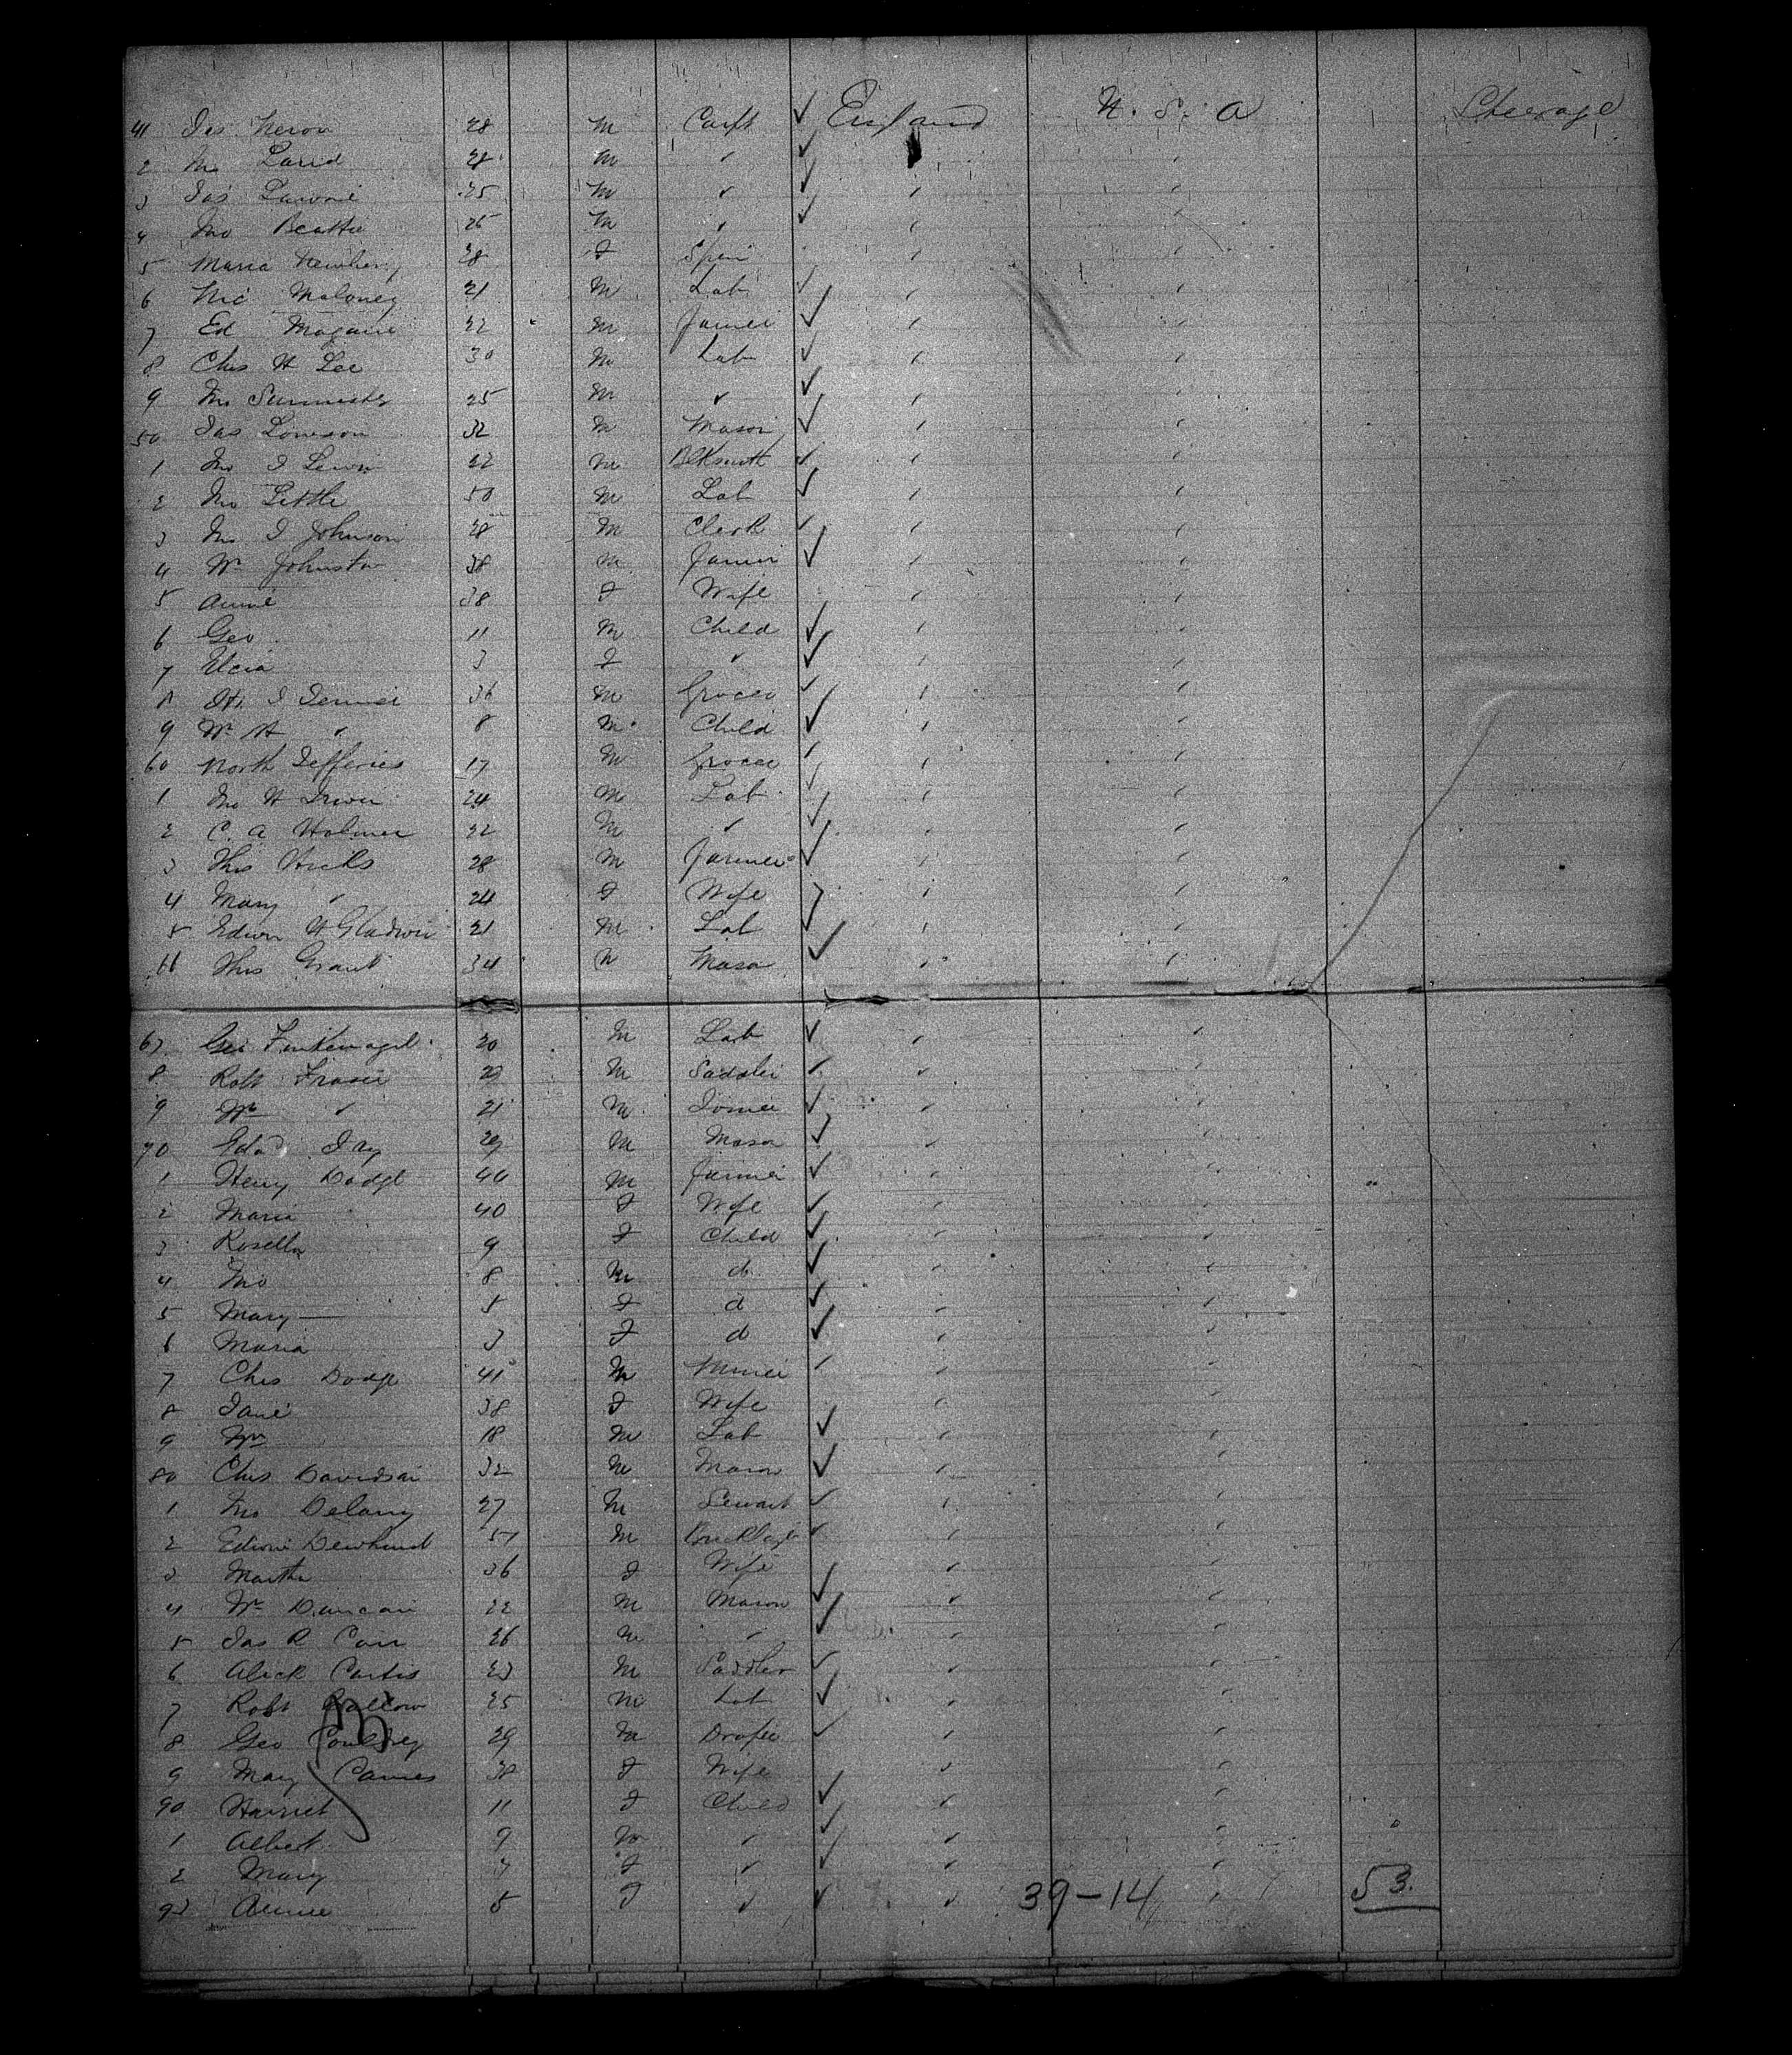 41 Jas 28 M Carpt ✓ England U. S. A Steerage
2 Jno Laird 28 M "
3 Jas 25 M "
4 Jno Beattie 26 M "
5 Maria Newbery 28 F Spin
6 Mic Maloney 21 M Lab ✓
7 Ed Maguire 22 M Farmer ✓
8 Chs H Lee 30 M Lab ✓
9 Jno 25 M " ✓
50 Jas Lowson 32 M Mason ✓
1 Jno J Lewis 22 M Blksmith ✓
2 Jno Little 50 M Lab ✓
3 Jno J Johnson 28 M Clerk ✓
4 Wm Johnston 38 M Farmer ✓
5 Annie 38 F Wife
6 Geo 11 M Child ✓
7 3 F " ✓
8 36 M Grocer ✓
9 Wm H " 8 M Child ✓
60 North Jefferies 17 M Grocer
1 Jno W Irwin 24 M Lab ✓
2 C. A Holmes 22 M " ✓
3 Thos Hicks 28 M Farmer ✓
4 Mary " 24 F Wife
5 Edwin H Gladwin 21 M Lab ✓
66 Thos Grant 34 M Mason ✓
67 Geo 20 M Lab ✓
8 Robt Fraser 23 M Saddler ✓
9 Wm " 21 M Joiner ✓
70 Edwd Dry 29 M Mason ✓
1 Henry Dodge M Farmer ✓
2 Maria 40 F Wife ✓
3 Rosella 9 F Child ✓
4 Jno 8 M d ✓
5 Mary 5 F d ✓
6 Maria 3 F d ✓
7 Chs Dodge 41 M Miner ✓
8 Jane 38 F Wife
9 Wm 18 M Lab ✓
80 Chs Davidson 32 M Mason ✓
1 Jno Delany 27 M Servant ✓
2 Edwin Dewhurst 51 M Bricklayer ✓
3 Martha 36 F Wife
4 Wm Duncan 22 M Mason ✓
5 Jas R Carr 26 M " ✓
6 Alick Curtis 23 M Saddler ✓
7 Robt 25 M Lab ✓
8 Geo 29 M Draper ✓
9 Mary Carnes 38 F Wife
90 Harriet 11 F Child ✓
1 Albert 9 M " ✓
2 Mary 7 F " ✓
93 Annie 5 F " ✓ 39-14 53.